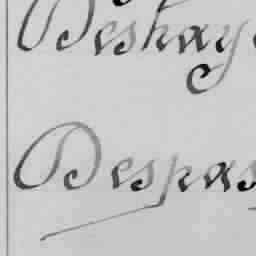 Deshay
Despas